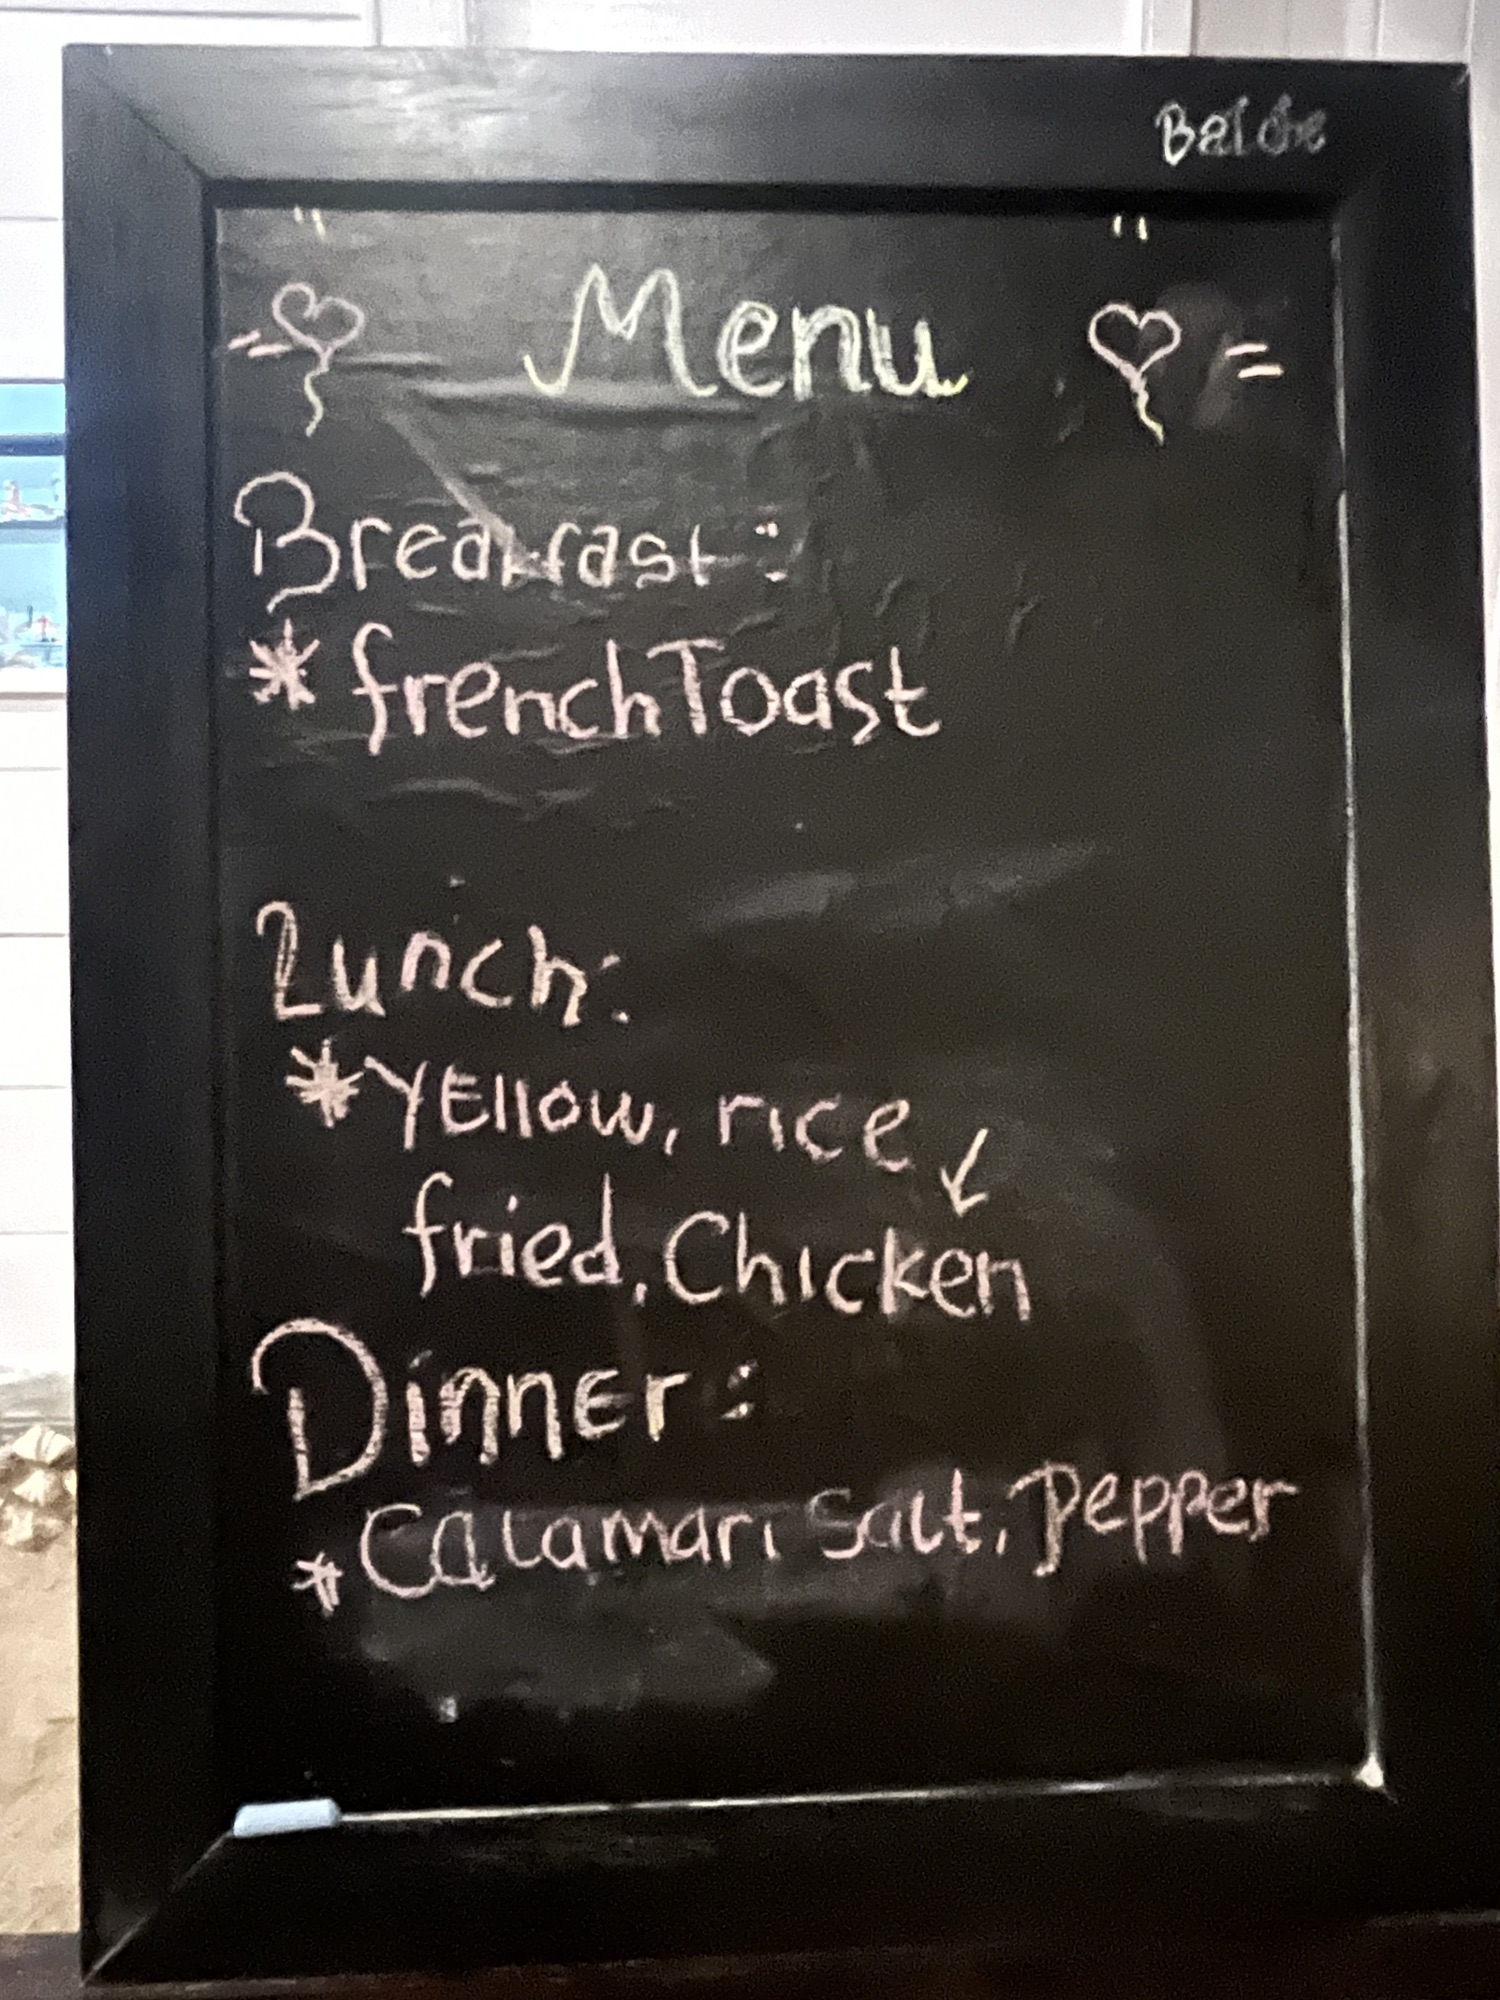 Menu
Breakfast:
* french Toast
Lunch:
* YEllow, rice
fried, Chicken
DinnEr:
* Calamari Salt, Pepper